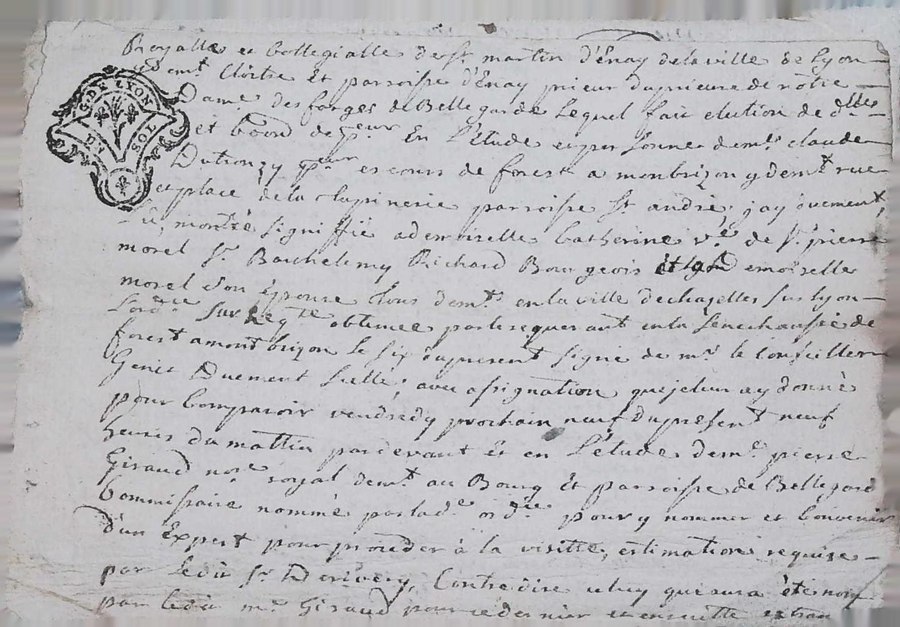 Royalle et Collegialle de St. martin d'Enay de la ville de Lyon
y demt. Cloitre et parroisse d'Enay prieur du prieuré de nôtre
Dame des forges de Bellegarde Lequel fait election de dlle
et bond de pceur En L'étude et personne de me. claude
Dutronzy pceur es cours de forest a montbrizon y demt. rue
et place de la Chapinerie parroisse St. andré, j'ay duement
montré signiffié a demoiselle Catherine ve. de Sr. pierre
morel Sr. Barthelemy Richard Bourgeois et demoiselle
morel son épouse Tous demts. en la ville de chazelles sur Lyon
Lord.ce sur Reqte obtenüe par le requerant en la Senechaussée de
forest a montbrizon le six du present signé de mr. le Conseiller
Genie Duement scellé, avec assignation que je leur ay donné
pour Comparoir vendredy prochain neuf du present neuf
heures du mattin pardevant et en L'étude de me. pierre
Giraud nore. royal demt. au Bourg et parroisse de Bellegarde
Commissaire nommé par lade ordce pour y nommer et Convenir
D'un Expert pour proceder à la visitte, estimation requise
par ledit Sr. Contredire celuy qui sera été nom
par ledit me. Giraud pour ce dernier et ensuitte
G. DE LYON
UN SOL